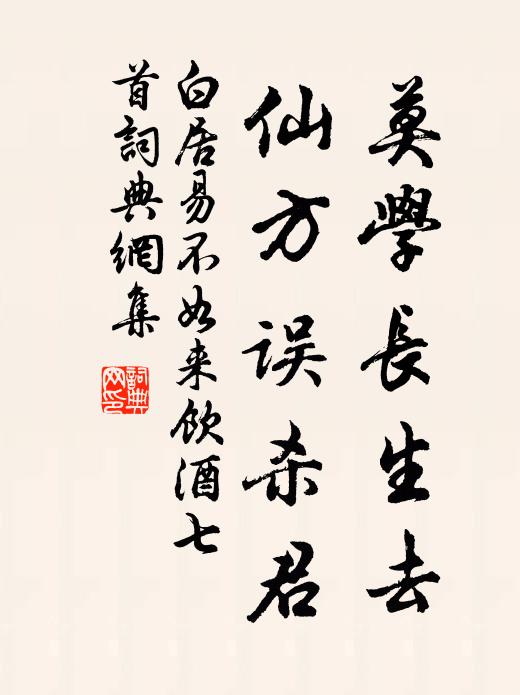 莫學長生去
仙方误杀君
白居易不如来飲酒七
首詞典網集
詞典
网印